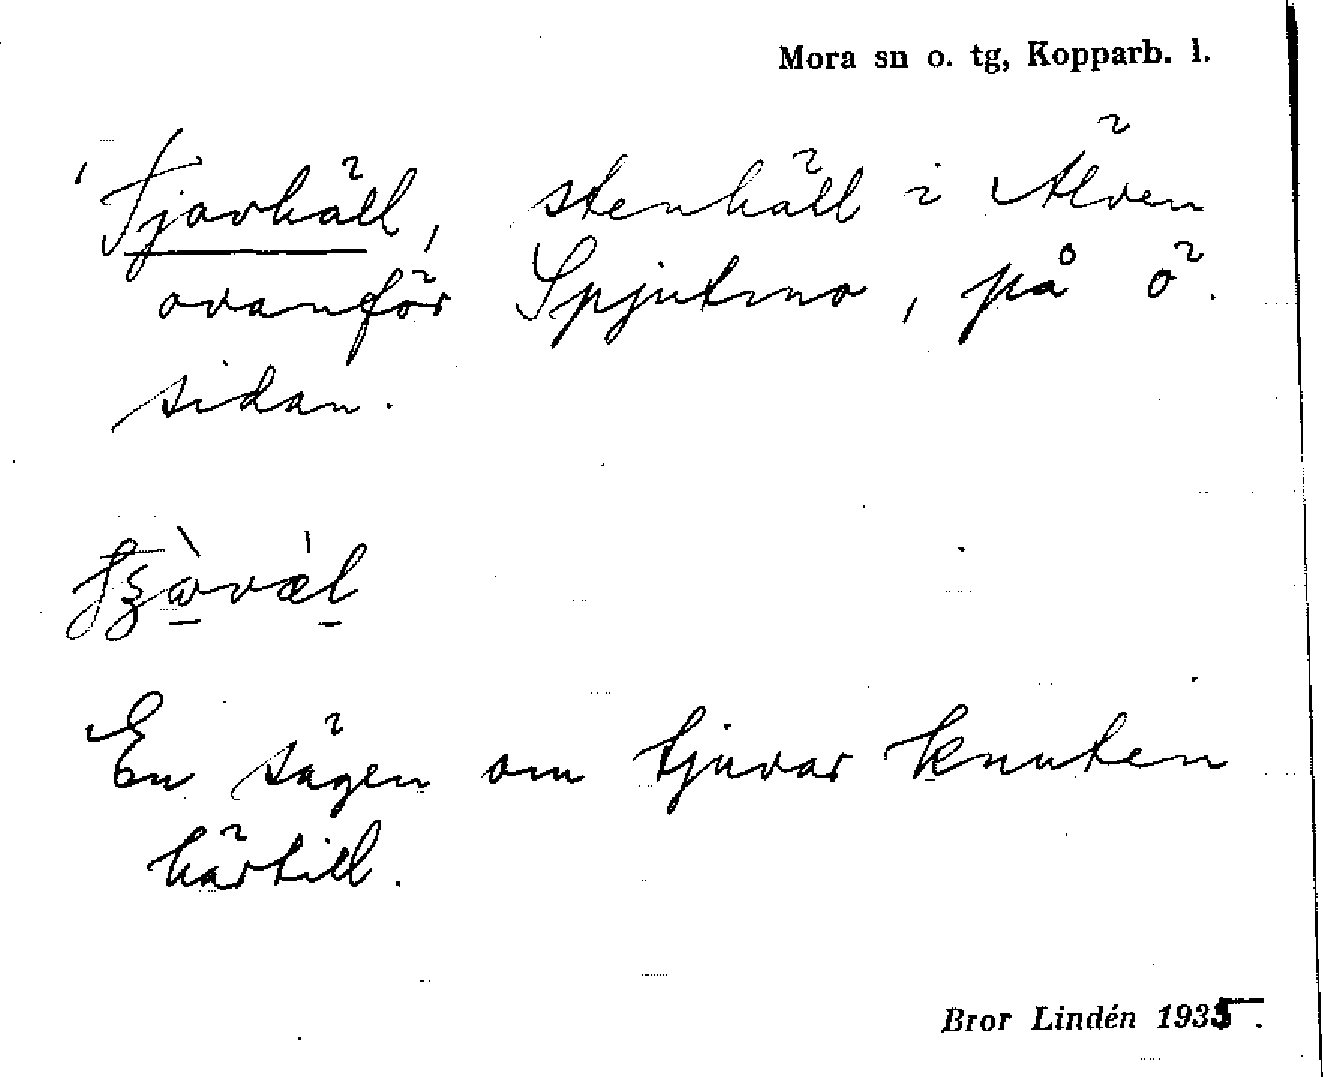 Mora sn o. tg, Kopparb. l.
'Tjovhäll, stenhäll i Älven
ovanför Spjutmo, på ö.
sidan.
En sägen om tjuvar knuten
härtill.
Bror Lindén 1935.